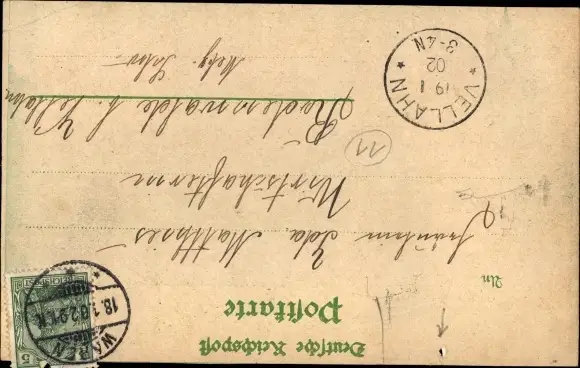 Deutsche Reichspost
Postkarte
An
Fräulein Ida Matthies
Wirtschafterin
11
Rodenwalde b. Vellahn
Meckl.
WAREN
18.1.02.
5
VELLAHN
19 1
02
3-4N